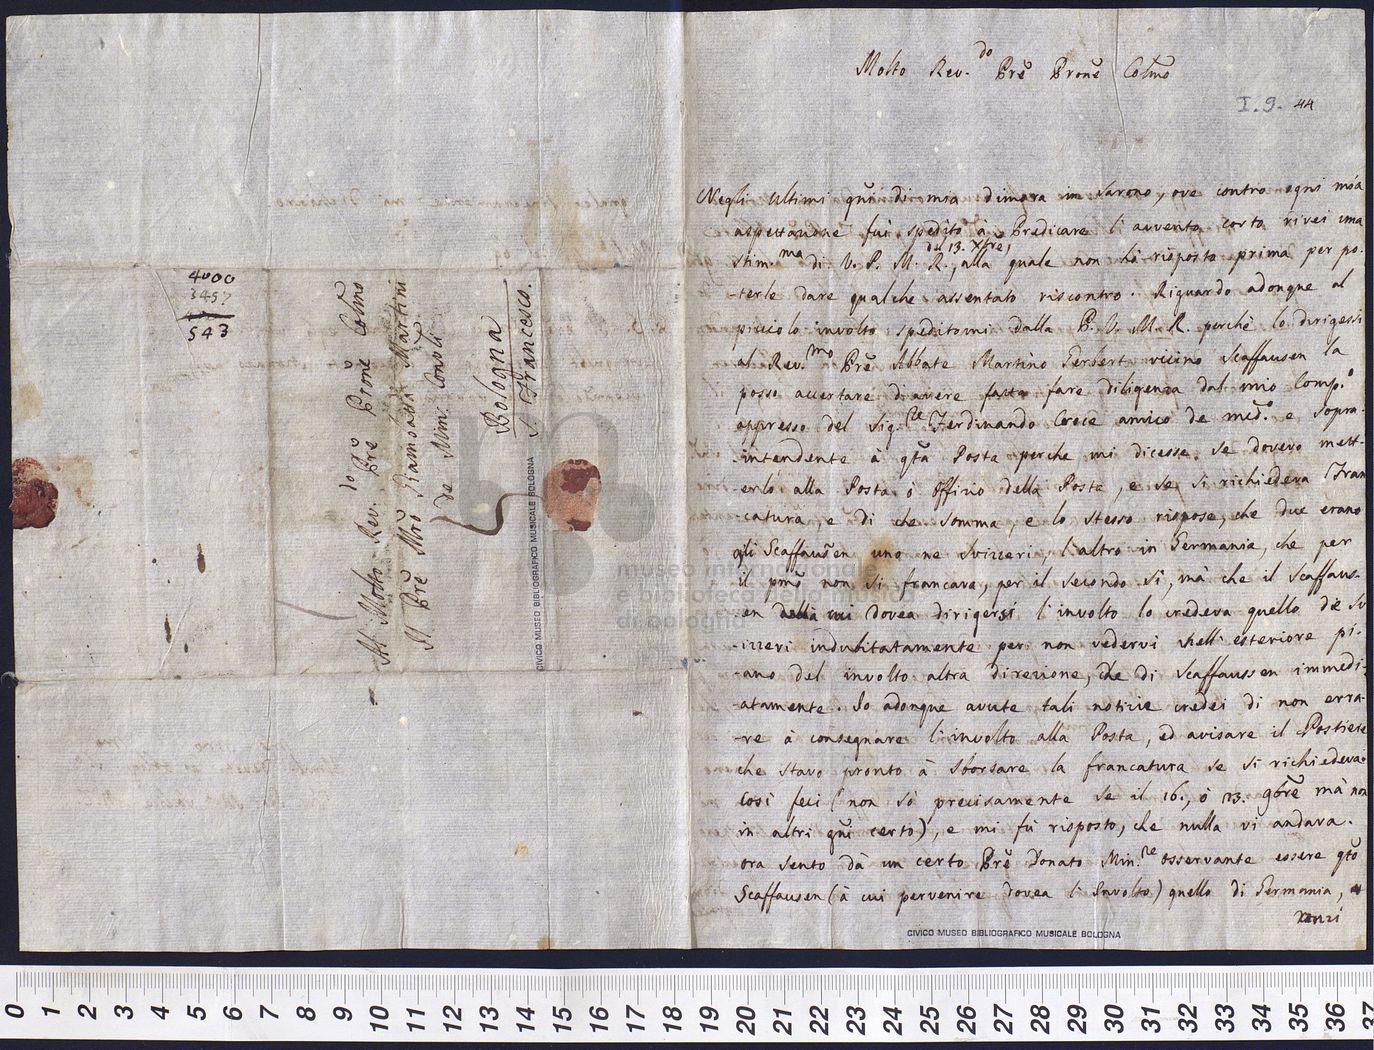 4000
3457
543
Al Molto Rev.do Pre Prone Colmo
Il Pre Mro Giambatta Martini
de Min: Conli
Bologna
S. Francesco.
Molto Rev.do Pre Prone Colmo
I. 9. 44
Negli ultimi qñi di mia dimora in Varono, ove contro ogni mia
aspettazione fui spedito à Predicare l'avvento corto rivei una
del 13. Xbre,
stim.ma di V. P. M. R., alla quale non hò risposto prima per po-
-terle dare qualche assentato riscontro. Riguardo adonque al
picciolo involto speditomi dalla P. V. M. R. perchè lo dirigessi
al Rev.mo Pre Abbate Martino Gerbert vicino Scaffausen la
posso accertare di avere fatto fare diligenza dal mio Comp.o
appresso del Sig.re Ferdinando Croce amico de med.o e sopra-
-intendente à qta Posta perche mi dicesse se dovevo mett-
-erlo alla Posta ò Offizio della Posta, e se si richiedeva Fran
-catura, e di che somma, e lo stesso rispose, che due erano
gli Scaffausen uno ne Svizzeri, l'altro in Germania, che per
il pmo non si francava, per il secondo si, mà che il Scaffaus-
-en dovea dirigersi l'involto lo credeva quello de Sv
-izzeri indubitatamente per non vedervi nell' esteriore pi-
-ano del involto altra direzione, che di Scaffaussen immedi-
-atamente. Io adonque avute tali notizie credei di non erra-
-re à consegnare l'involto alla Posta, ed avisare il Postiere
che stavo pronto à sborsare la francatura se si richiedeva.
Così feci (non sò precisamente se il 16., ò 23. 9bre mà non
in altri qñi certo), e mi fù risposto, che nulla vi andava.
ora sento dà un certo Pre Donato Min.re osservante essere qto
Scaffausen (à cui pervenire dovea l'Involto) quello di Germania,
anzi
CIVICO MUSEO BIBLIOGRAFICO MUSICALE BOLOGNA
CIVICO MUSEO BIBLIOGRAFICO MUSICALE BOLOGNA
museo internazionale
e biblioteca della musica
di bologna
0 1 2 3 4 5 6 7 8 9 10 11 12 13 14 15 16 17 18 19 20 21 22 23 24 25 26 27 28 29 30 31 32 33 34 35 36 37